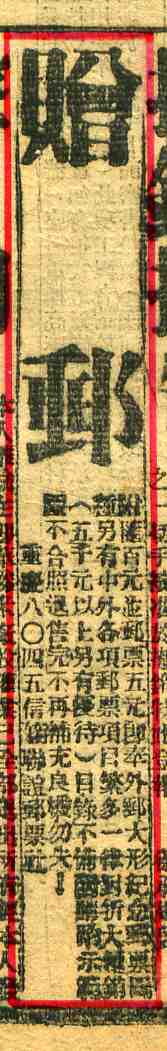 贈郵
附匯百元並郵票五元即奉外郵大形紀念郵票
另有中外各項郵票項目繁多一律對折大
(五千元以上另有優待)目錄不備函購示範
不合照退售完不再補充良機勿失!
重慶八〇四五信箱聯誼郵票社